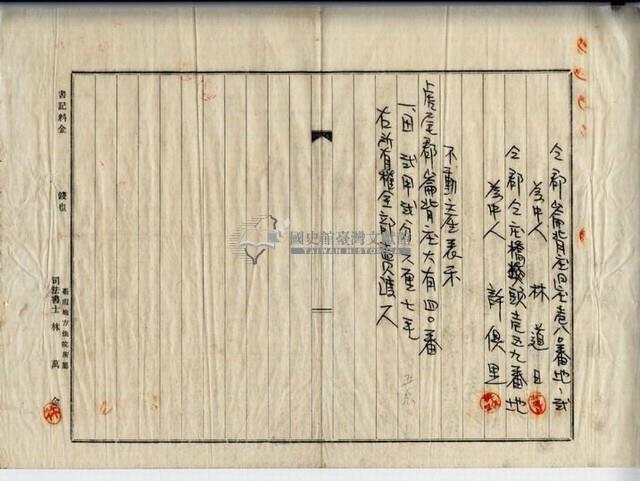 仝郡崙背庄崙背壱八〇番地ノ弐
為中人 林道日
仝郡仝庄橋頭壱五九番地
為中人 許俱里
不動産表示
虎尾郡崙背庄大有四〇番
一、田 弐甲弐分八厘七毛
右所有權全部賣渡人
書記料金 錢也
臺南地方法院所屬
司法書士 林萬
國史館臺灣文獻館
TAIWAN HISTORICA